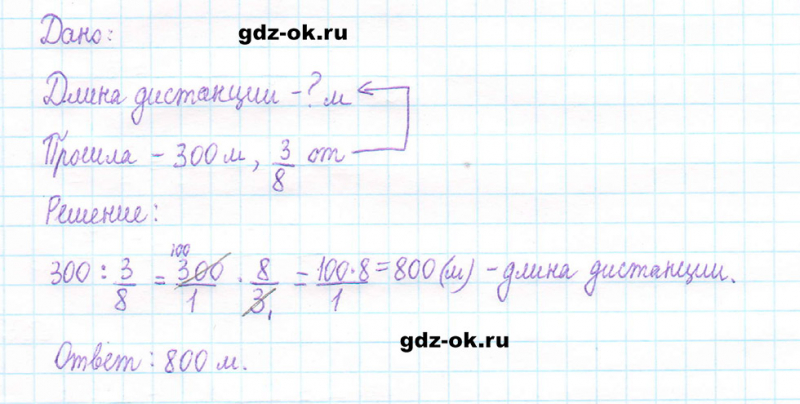 Дано:
gdz-ok.ru
Длина дистанции - ? м
Прошла - 300 м, 3/8 от
Решение:
300 : 3/8 = 300/1 · 8/3 = 100·8/1 = 800 (м) - длина дистанции.
100 1
gdz-ok.ru
Ответ: 800 м.